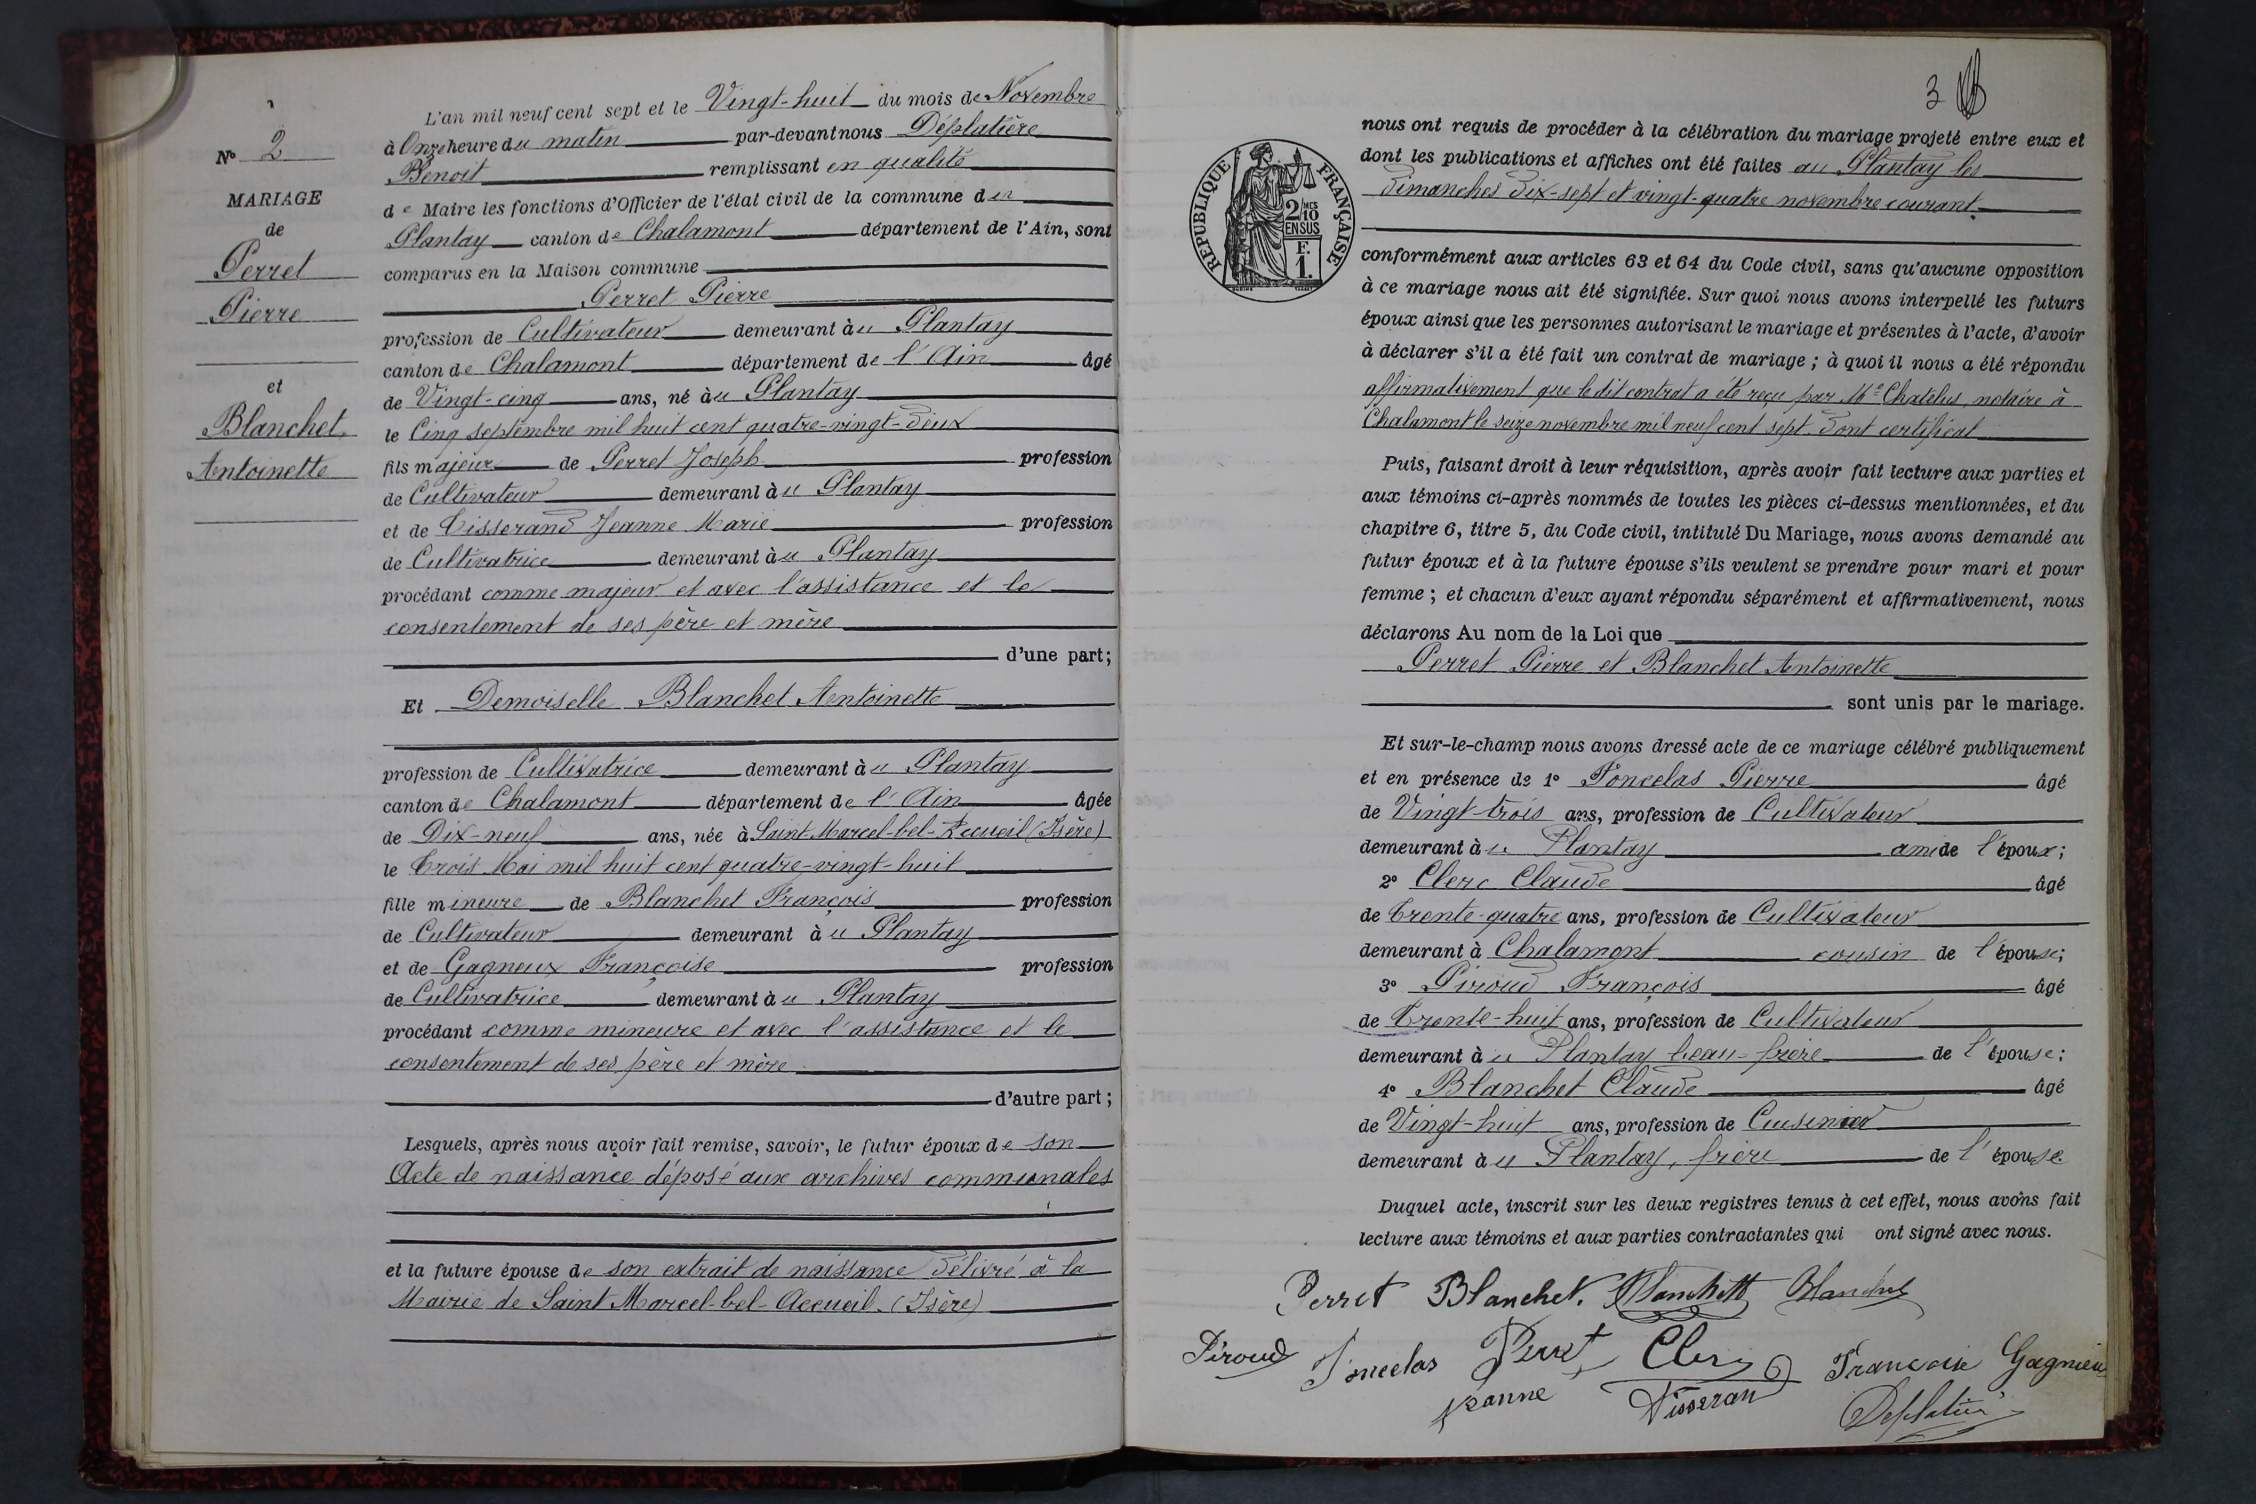 N° 2
MARIAGE
de
Perret
Pierre
et
Blanchet
Antoinette
L'an mil neuf cent sept et le Vingt-huit du mois de Novembre
à Onze heure du matin par-devant nous Déplatière
Benoit remplissant en qualité
de Maire les fonctions d'Officier de l'état civil de la commune du
Plantay canton de Chalamont département de l'Ain, sont
comparus en la Maison commune
Perret Pierre
profession de Cultivateur demeurant àu Plantay
canton de Chalamont département de l'Ain âgé
de Vingt-cinq ans, né àu Plantay
le Cinq septembre mil huit cent quatre-vingt-deux
fils majeur de Perret Joseph profession
de Cultivateur demeurant àu Plantay
et de Tisserand Jeanne Marie profession
de Cultivatrice demeurant àu Plantay
procédant comme majeur et avec l'assistance et le
consentement de ses père et mère
d'une part;
Et Demoiselle Blanchet Antoinette
profession de Cultivatrice demeurant àu Plantay
canton de Chalamont département de l'Ain âgée
de Dix-neuf ans, née à Saint Marcel-bel-Accueil (Isère)
le Trois Mai mil huit cent quatre-vingt-huit
fille mineure de Blanchet François profession
de Cultivateur demeurant àu Plantay
et de Gagneux Françoise profession
de Cultivatrice demeurant àu Plantay
procédant comme mineure et avec l'assistance et le
consentement de ses père et mère
d'autre part;
Lesquels, après nous avoir fait remise, savoir, le futur époux de son
Acte de naissance déposé aux archives communales
et la future épouse de son extrait de naissance délivré à la
Mairie de Saint Marcel-bel-Accueil. (Isère)
3
RÉPUBLIQUE FRANÇAISE
2/10 MES EN SUS
F. 1.
nous ont requis de procéder à la célébration du mariage projeté entre eux et
dont les publications et affiches ont été faites au Plantay les
dimanches dix-sept et vingt-quatre novembre courant.
conformément aux articles 63 et 64 du Code civil, sans qu'aucune opposition
à ce mariage nous ait été signifiée. Sur quoi nous avons interpellé les futurs
époux ainsi que les personnes autorisant le mariage et présentes à l'acte, d'avoir
à déclarer s'il a été fait un contrat de mariage; à quoi il nous a été répondu
affirmativement que le dit contrat a été reçu par Me Chatelus, notaire à
Chalamont le seize novembre mil neuf cent sept. dont certificat
Puis, faisant droit à leur réquisition, après avoir fait lecture aux parties et
aux témoins ci-après nommés de toutes les pièces ci-dessus mentionnées, et du
chapitre 6, titre 5, du Code civil, intitulé Du Mariage, nous avons demandé au
futur époux et à la future épouse s'ils veulent se prendre pour mari et pour
femme; et chacun d'eux ayant répondu séparément et affirmativement, nous
déclarons Au nom de la Loi que
Perret Pierre et Blanchet Antoinette
sont unis par le mariage.
Et sur-le-champ nous avons dressé acte de ce mariage célébré publiquement
et en présence de 1° Poncelas Pierre âgé
de Vingt-trois ans, profession de Cultivateur
demeurant àu Plantay ami de l'époux;
2° Clerc Claude âgé
de Trente-quatre ans, profession de Cultivateur
demeurant à Chalamont cousin de l'épouse;
3° Piroud François âgé
de Trente-huit ans, profession de Cultivateur
demeurant àu Plantay beau-frère de l'épouse;
4° Blanchet Claude âgé
de Vingt-huit ans, profession de Cuisinier
demeurant àu Plantay, frère de l'épouse
Duquel acte, inscrit sur les deux registres tenus à cet effet, nous avons fait
lecture aux témoins et aux parties contractantes qui ont signé avec nous.
Perret Blanchet. A Blanchett Blanchet
Piroud Poncelas Perret Clerc Francoise Gagnieu
Jeanne Tisseran Deplatière